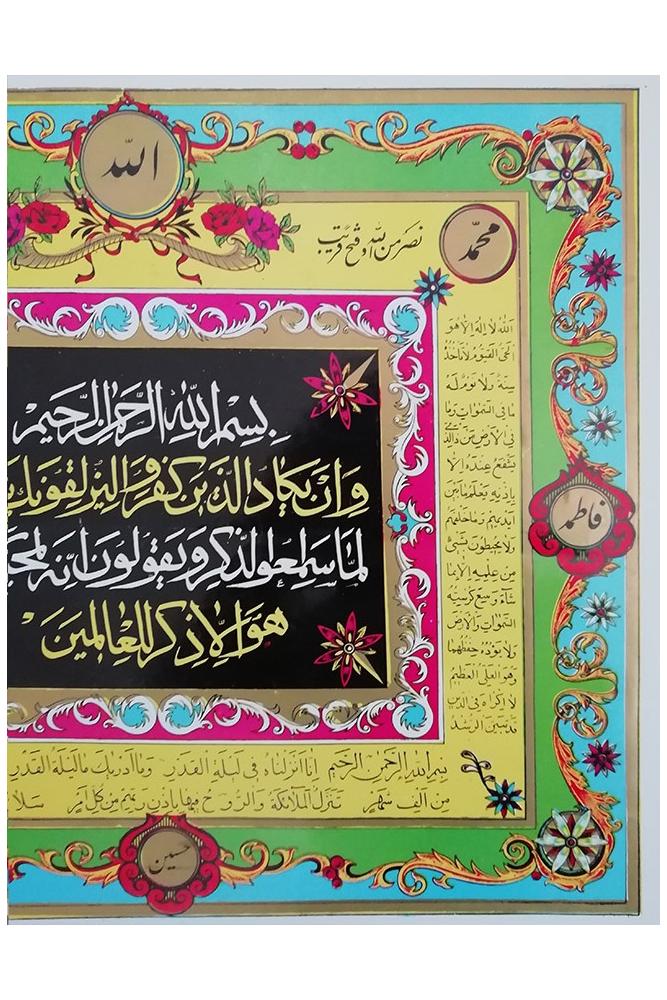 الله
نصر من الله و فتح قريب
محمد
بسم الله الرحمن الرحيم
وان يكاد الذين كفروا ليزلقونك
لما سمعوا الذكر ويقولون انه
هو الا ذكر للعالمين
الله لا اله الا هو
الحي القيوم لا تاخذه
سنة ولا نوم له
ما في السموات وما
في الارض من ذا الذي
يشفع عنده الا
باذنه يعلم ما بين
ايديهم وما خلفهم
ولا يحيطون بشئ
من علمه الا بما
شاء وسع كرسيه
السموات والارض
ولا يؤده حفظهما
وهو العلي العظيم
لا اكراه في الدين
قد تبين الرشد
فاطمه
بسم الله الرحمن الرحيم انا انزلناه في ليلة القدر وما ادريك ما ليلة القدر
من الف شهر تنزل الملائكة والروح فيها باذن ربهم من كل امر سلام
حسين